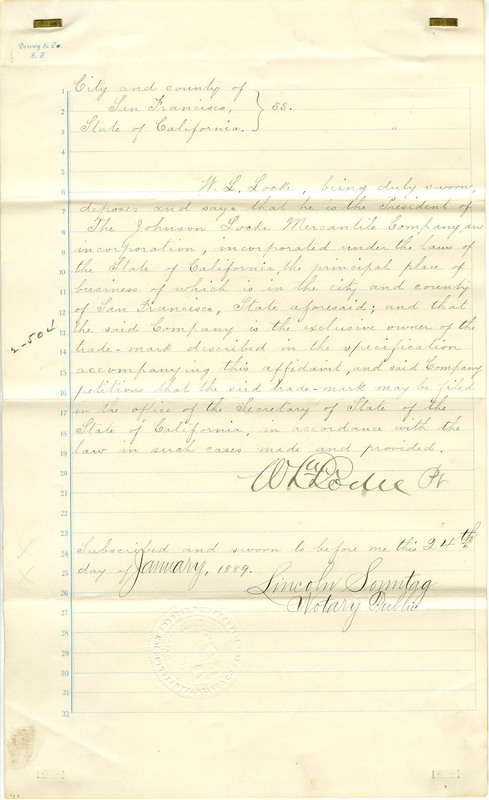 Dewey & Co
S. F.
City and county of
San Francisco,
State of California.
} ss.
W. L. Locke, being duly sworn,
deposes and says that he is the President of
The Johnson Locke Mercantile Company, an
incorporation, incorporated under the laws of
the State of California, the principal place of
business of which is in the city and county
of San Francisco, State aforesaid; and that
the said Company is the exclusive owner of the
trade-mark described in the specification
accompanying this affidavit, and said Company
petitions that the said trade-mark may be filed
in the office of the Secretary of State of the
State of California, in accordance with the
law in such cases made and provided.
Locke
Subscribed and sworn to before me this 24th
day of January, 1889.
Lincoln Sonntag
Notary Public
1
2
3
4
5
6
7
8
9
10
11
12
13
14
15
16
17
18
19
20
21
22
23
24
25
26
27
28
29
30
31
32